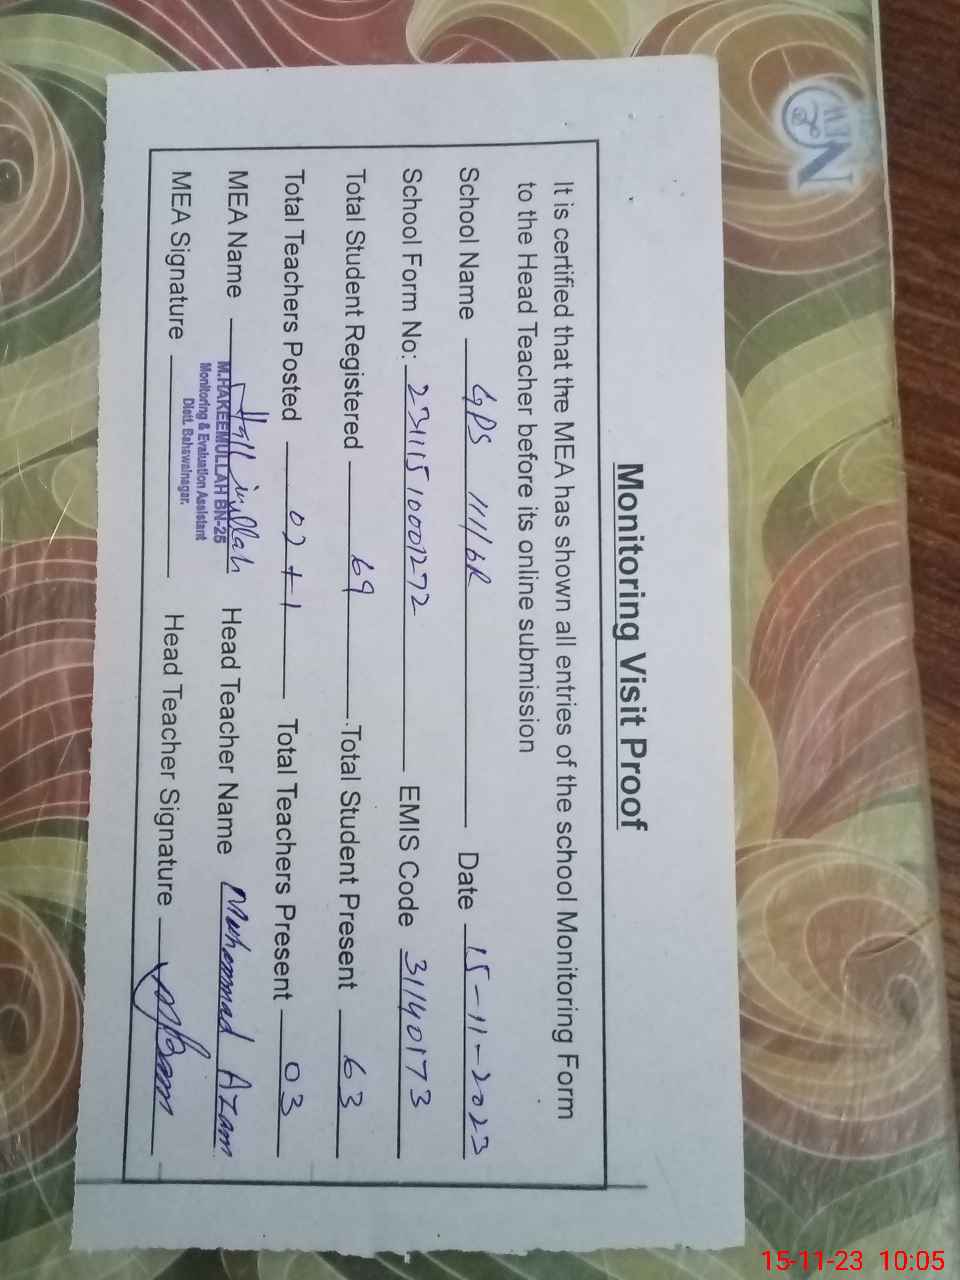 Monitoring Visit Proof
It is certified that the MEA has shown all entries of the school Monitoring Form
to the Head Teacher before its online submission
School Name GPS 111/6R Date 15-11-2023
School Form No: 23111510001272 EMIS Code 31140173
Total Student Registered 69 Total Student Present 63
Total Teachers Posted 02+1 Total Teachers Present 03
MEA Name Head Teacher Name Muhammad Azam
M.HAKEEMULLAH BN-25
Monitoring & Evaluation Assistant
Distt. Bahawalnagar.
MEA Signature Head Teacher Signature
NEW
15-11-23 10:05